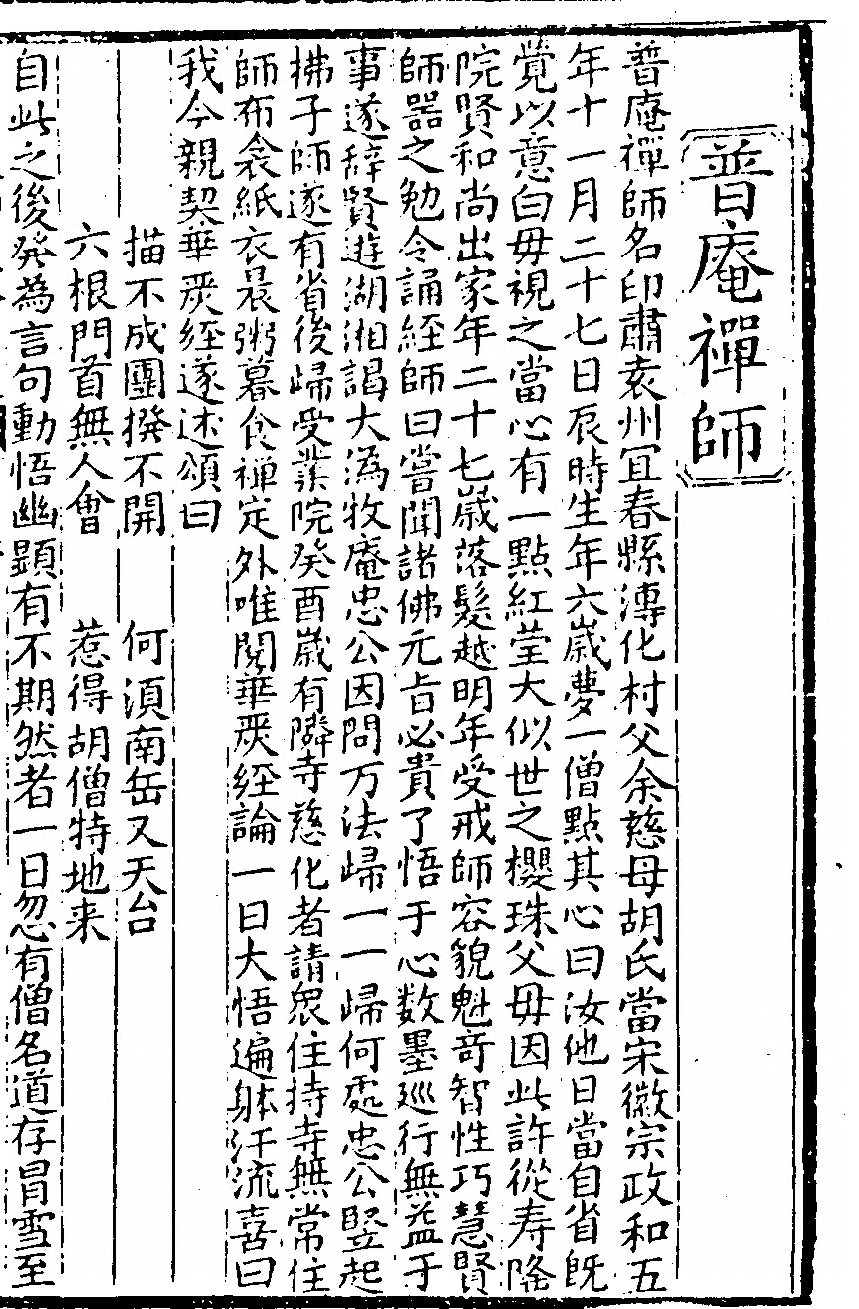 普庵禪師
普庵禪師名印肅袁州冝春縣漙化村父余慈母胡氏當宋徽宗政和五
年十一月二十七日辰時生年六歲夢一僧點其心曰汝他日當自省旣
覺以意白母視之當心有一點紅瑩大似世之櫻珠父母因此許從寿隆
院賢和尚出家年二十七歲落髮越明年受戒師容貌魁竒智性巧慧賢
師器之勉令誦経師曰嘗聞諸佛元㫖必貴了悟于心数墨廵行無益于
事遂辞賢遊湖湘謁大溈牧庵忠公因問万法歸一一歸何處忠公竪起
拂子師遂有省後歸受業院癸酉歲有隣寺慈化者請衆住持寺無常住
師布衾紙衣晨粥暮食禅定外唯閱華嚴経論一日大悟遍躰汗流喜曰
我今親契華嚴経遂述頌曰
描不成團撥不開　何湏南岳又天台
六根門首無人會　惹得胡僧特地来
自此之後癸為言句動悟幽顕有不期然者一日忽有僧名道存冒雪至